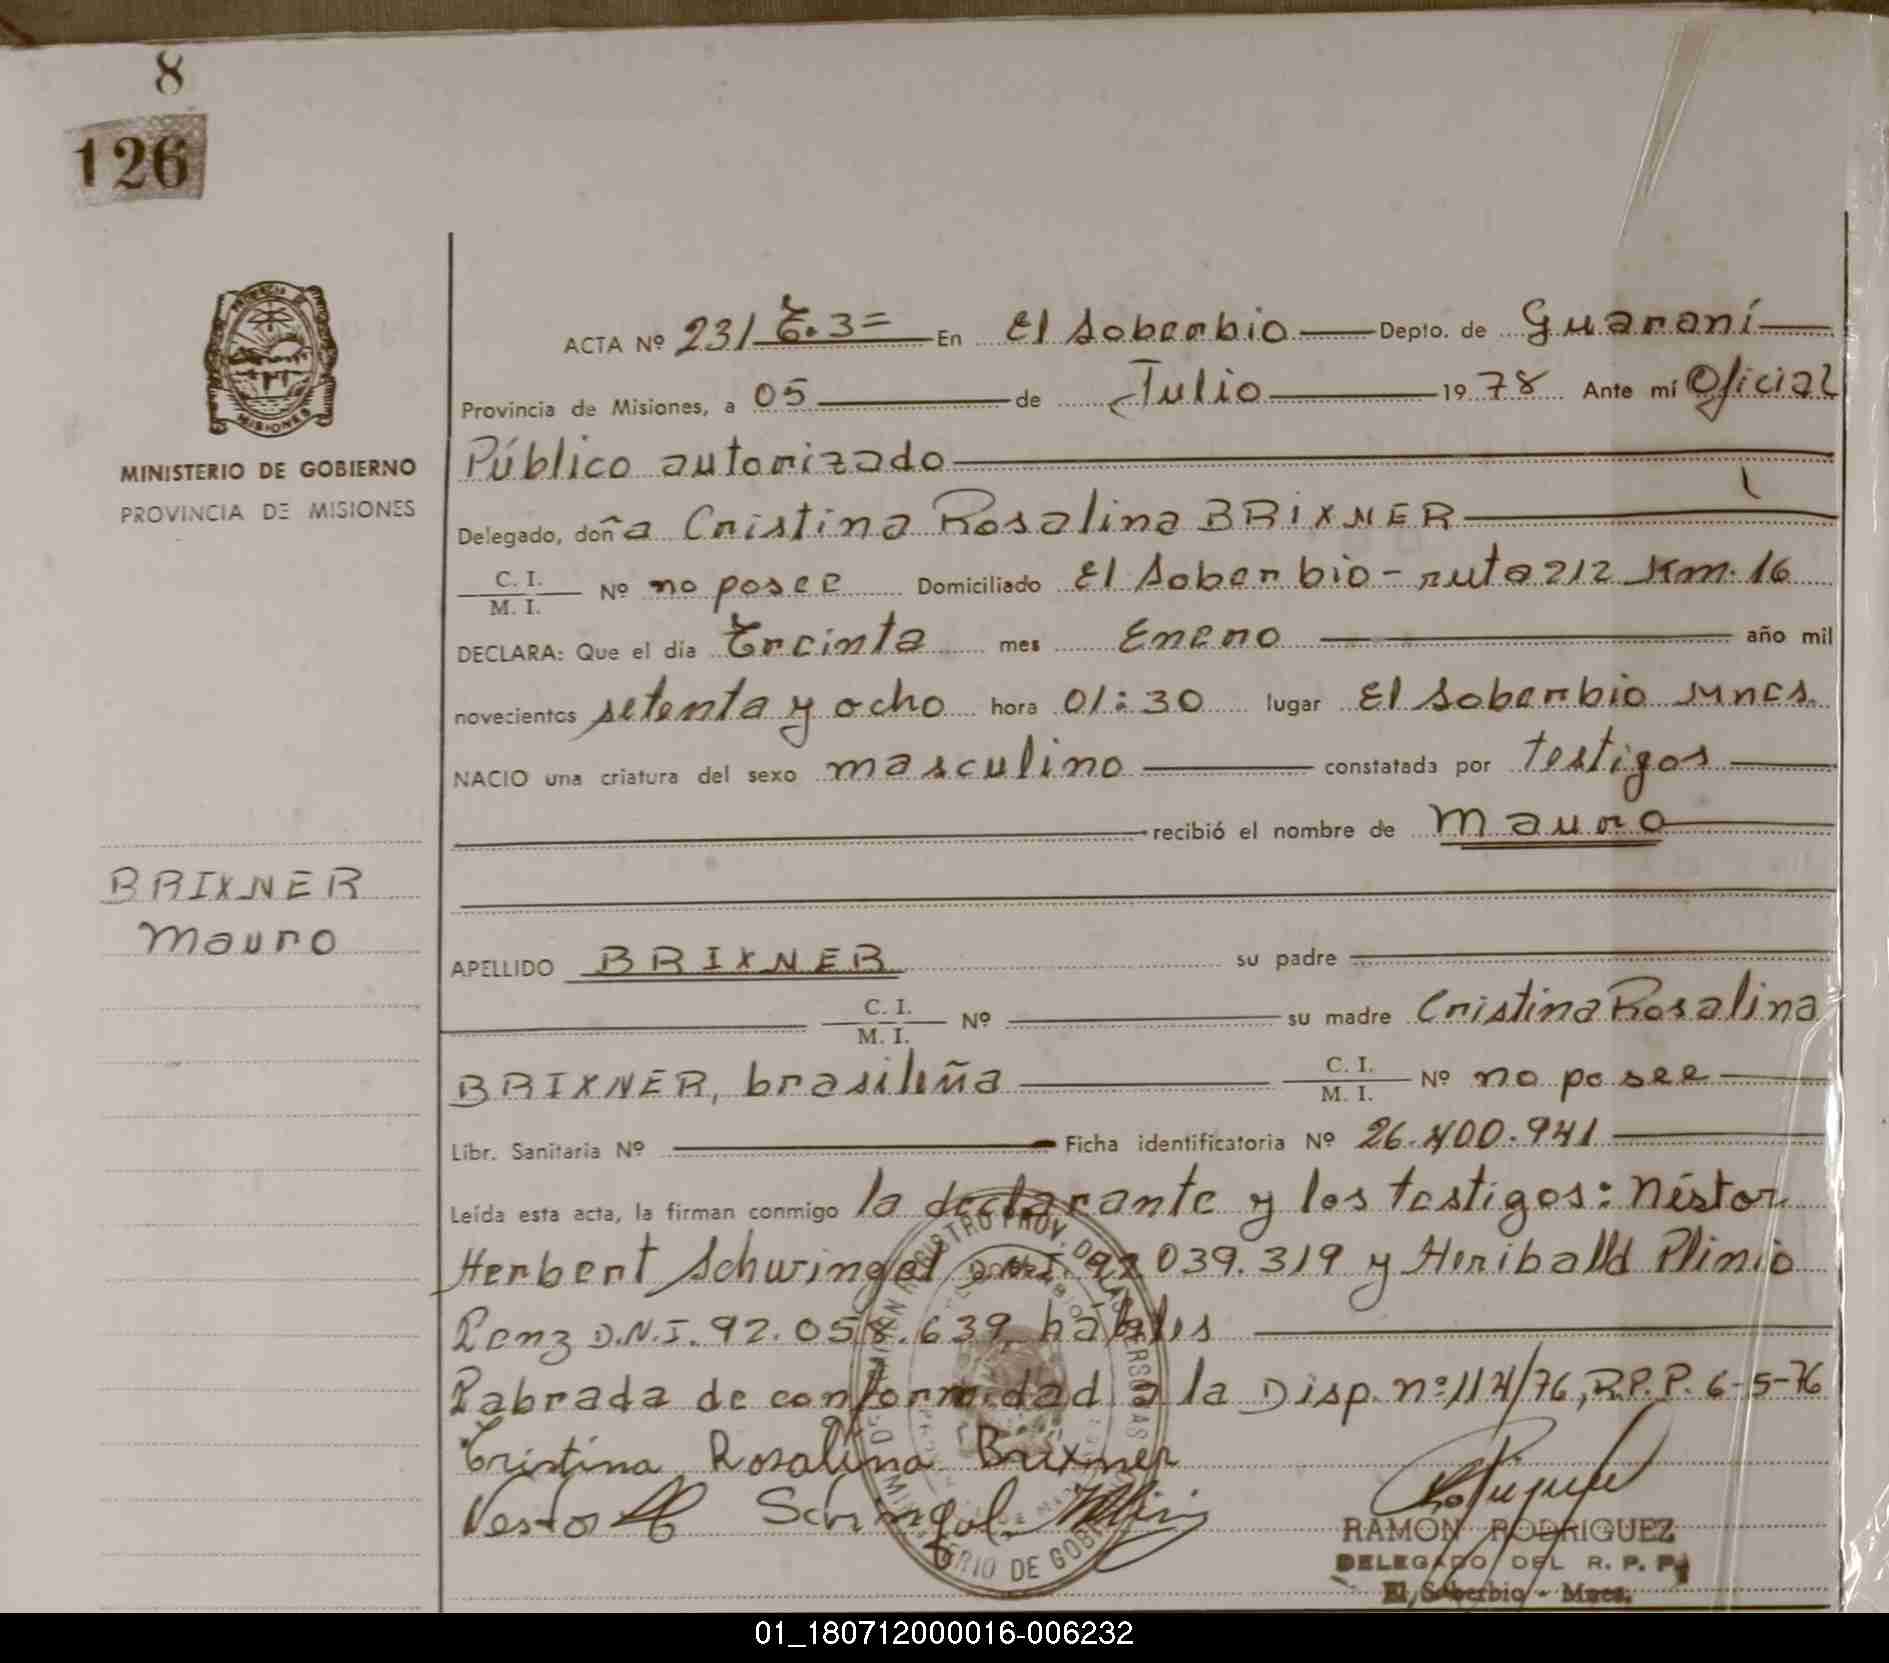 8
126
MINISTERIO DE GOBIERNO
PROVINCIA DE MISIONES
BRIXNER
Mauro
ACTA Nº 231 T.3= En El Soberbio Depto. de Guaraní
Provincia de Misiones, a 05 de Julio 1978 Ante mí Oficial
Público autorizado
Delegado, doña Cristina Rosalina BRIXNER
C. I. / M. I. Nº no posee Domiciliado El Soberbio - ruta 212 Km. 16
DECLARA: Que el día Treinta mes Enero año mil
novecientos setenta y ocho hora 01:30 lugar El Soberbio Mnes.
NACIO una criatura del sexo masculino constatada por testigos
recibió el nombre de Mauro
APELLIDO BRIXNER su padre
C. I. / M. I. Nº su madre Cristina Rosalina
BRIXNER, brasileña C. I. / M. I. Nº no posee
Libr. Sanitaria Nº Ficha identificatoria Nº 26.400.941
Leída esta acta, la firman conmigo la declarante y los testigos: Néstor
Herbert Schwingel D.N.I. 92 039.319 y Heribaldo Plinio
Renz D.N.I. 92.058.639, hábiles
Labrada de conformidad a la Disp. nº 114/76, R.P.P. 6-5-76
Cristina Rosalina Brixner
Nestor H Schingel
RAMÓN RODRIGUEZ
DELEGADO DEL R. P. P.
El Soberbio - Mnes.
01_180712000016-006232